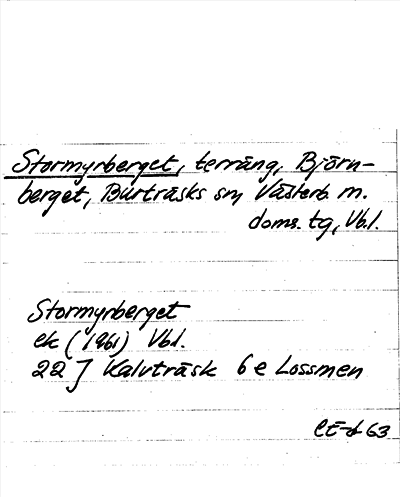 Stormyrberget, terräng, Björn-
berget, Burträsks sn, Västerb. m.
doms. tg, Vbl.
Stormyrberget
ek (1961) Vbl.
22 J Kalvträsk 6 e Lossmen
63